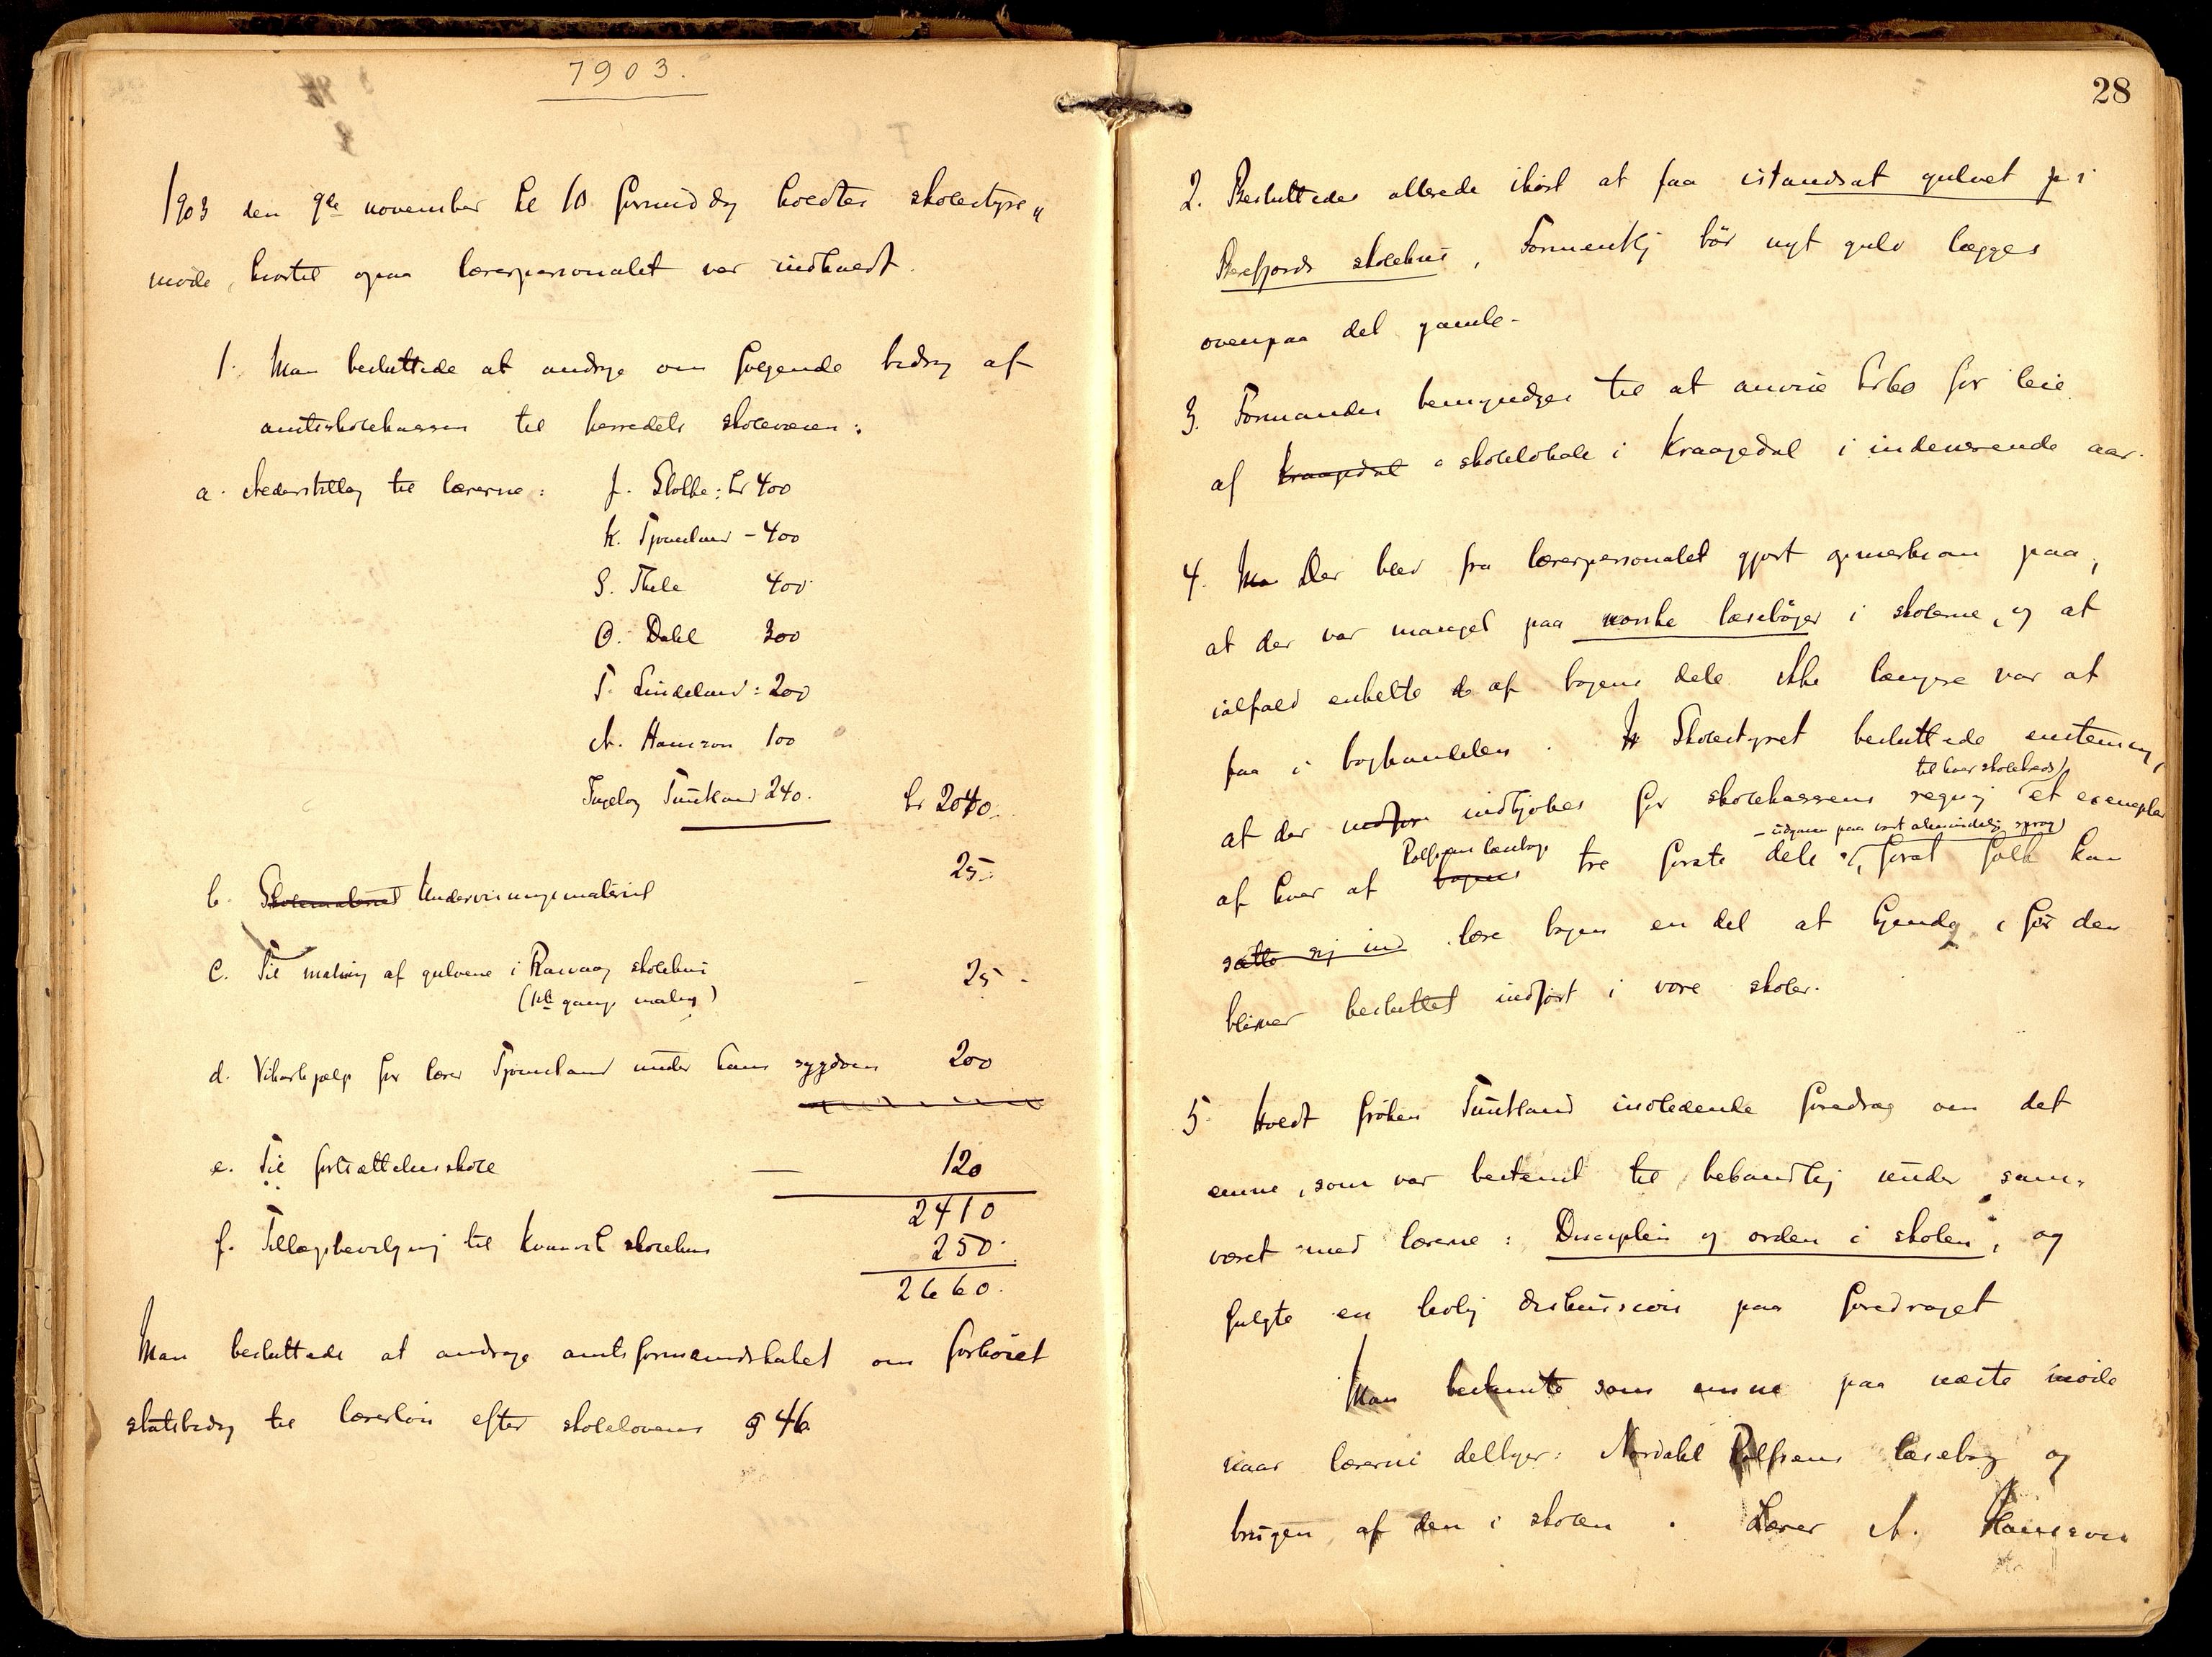 1903.
1903 den 9de november kl 10 formiddag holdtes skolestyre„
møde, hvortil ogsaa lærerpersonalet var indbudt.
1. Man besluttede at andrage om følgende bidrag af
amtsskolekassen til herredets skolevæsen:
a. Alderstillæg til lærerne: J. Stolke: kr 400
K. Tjomland - 400
S. Thele 400
O. Dahl 300
T. Lindeland: 200
A. Hanson 100
Ingeborg Tuntland 240. kr 2040.
b. Skolemateriel Undervisningsmateriel 25.-
c. Til maling af gulvene i Rasvaag skolehus - 25 -
(1ste gangs maling)
d. Vikarhjælp for lærer Tjomland under hans sygdom 200
e. Til fortsættelsesskole — 120
2410
f. Tillægsbevilgning til skolehus 250.
2660.
Man besluttede at andrage amtsformandskabet om forhøiet
statsbidrag til lærerløn efter skolelovens § 46.
28
2. Besluttedes allerede ihøst at faa istandsat gulvet i
skolehus, Formentlig bør nyt gulv lægges
ovenpaa det gamle-
3. Formanden bemyndiges til at anvise kr 60 for leie
af Kraagedal skolelokale i Kraagedal i indeværende aar.
4. Ma Der blev fra lærerpersonalet gjort opmerksom paa,
at der var mangel paa norske læsebøger i skolerne, og at
ialfald enkelte d af bogens dele ikke længere var at
faa i boghandelen. Skolestyret besluttede enstemmig,
til hver skolekreds
at der indføre indkjøbes for skolekassens regning et exemplar
- udgaven paa vort almindelig sprog)
Rolfsens læsebogs
af hver af bogens tre første dele, forat folk kan
sætte sig ind lære bogen en del at kjende, før den
bliver besluttet indført i vore skoler.
5. Holdt frøken Tuntland indledende foredrag om det
emne, som var bestemt til behandling under sam-
været med lærerne: Disciplin og orden i skolen", og
fulgte en livlig diskussion paa foredraget
Man bestemte som emne paa næste møde
naar lærerne deltager: Nordahl Rolfsens læsebog og
brugen af den i skolen. Lærer A. Hanson